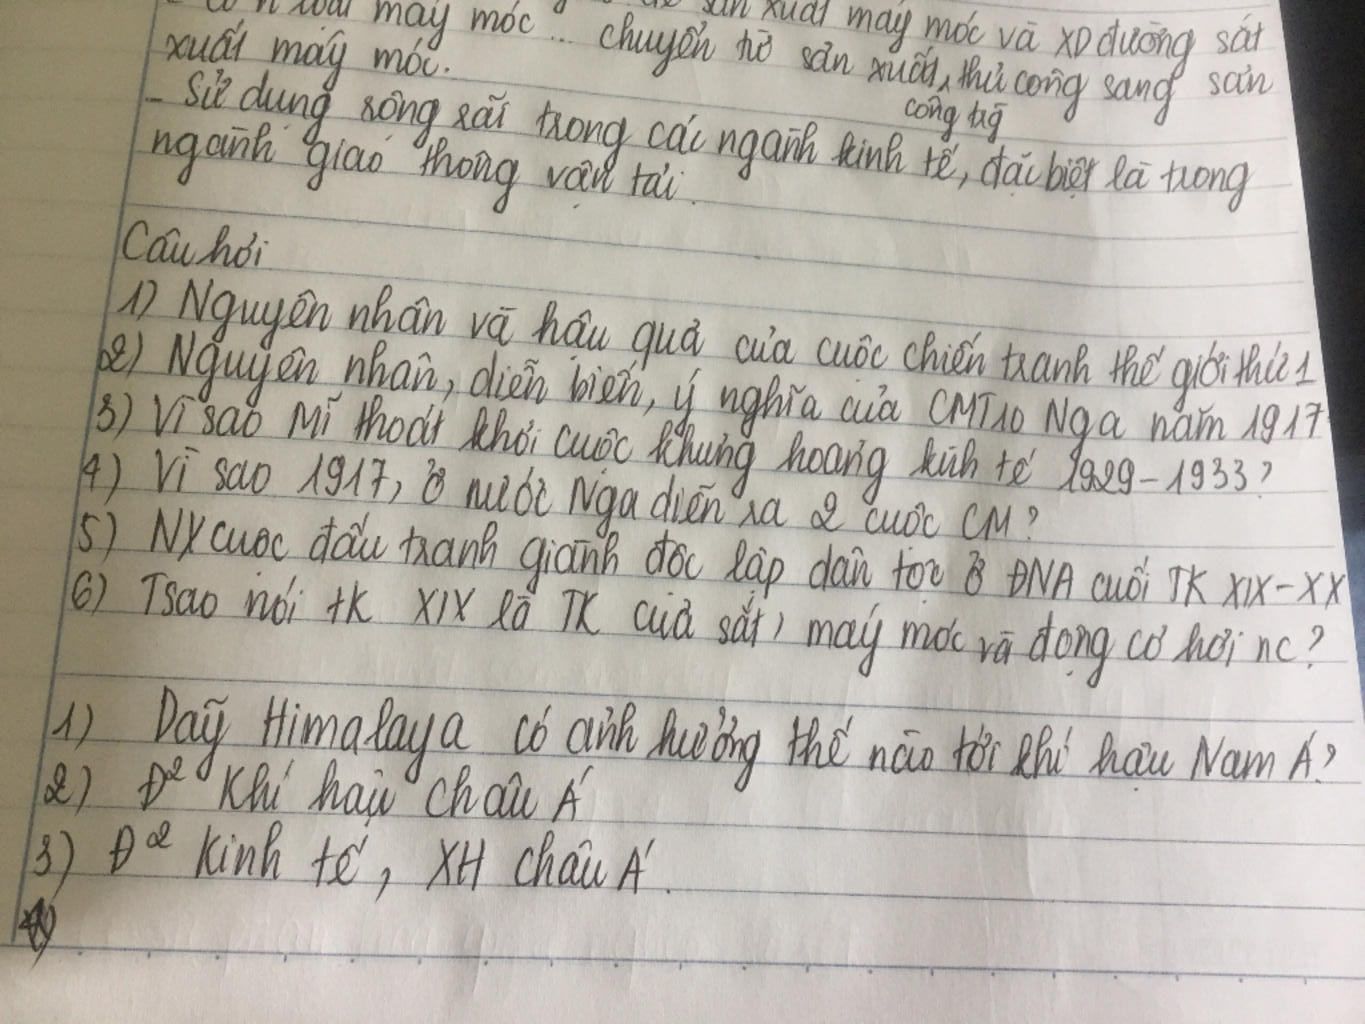 loại máy móc... để sản xuất máy móc và XD đường sắt
chuyển từ sản xuất thủ công sang sản
công trg
xuất máy móc.
- Sử dụng rộng rãi trong các ngành kinh tế, đặc biệt là trong
ngành giao thông vận tải.
Câu hỏi
1) Nguyên nhân và hậu quả của cuộc chiến tranh thế giới thứ 1
2) Nguyên nhân, diễn biến, ý nghĩa của CMT10 Nga năm 1917
3) Vì sao Mĩ thoát khỏi cuộc khủng hoảng kinh tế 1929-1933?
4) Vì sao 1917, ở nước Nga diễn ra 2 cuộc CM?
5) NX cuộc đấu tranh giành độc lập dân tộc ở ĐNA cuối TK XIX-XX
6) Tsao nói tK XIX là TK của sắt, máy móc và động cơ hơi nc?
1) Dãy Himalaya có ảnh hưởng thế nào tới khí hậu Nam Á?
2) Đ² Khí hậu châu Á
3) Đ² Kinh tế, XH châu Á.